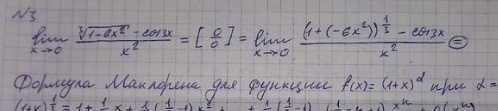 №3
lim x→0 (∛(1-6x²) - cos3x)/x² = [0/0] = lim x→0 ((1+(-6x²))^(1/3) - cos3x)/x² =
Формула Маклорена для функции f(x)=(1+x)^α при α=